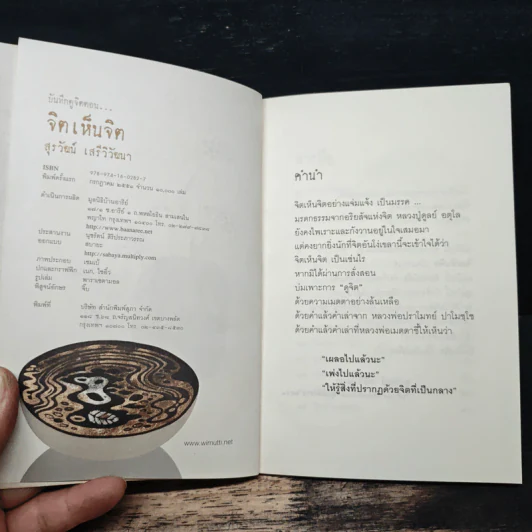 บันทึกดูจิตตอน...
จิตเห็นจิต
สุรวัฒน์ เสรีวิวัฒนา
ISBN
พิมพ์ครั้งแรก กรกฎาคม ๒๕๕๑ จำนวน ๑๐,๐๐๐ เล่ม
ดำเนินการผลิต มูลนิธิบ้านอารีย์
http://www.baanaree.net
ประสานงาน
ออกแบบ
http://sabaya.multiply.com
ภาพประกอบ
ปกและกราฟิก
รูปเล่ม
พิสูจน์อักษร
พิมพ์ที่ บริษัท สำนักพิมพ์สุภา จำกัด
www.wimutti.net
คำนำ
จิตเห็นจิตอย่างแจ่มแจ้ง เป็นมรรค ...
มรดกธรรมจากอริยสัจแห่งจิต หลวงปู่ดูลย์ อตุโล
ยังคงไพเราะและกังวานอยู่ในใจเสมอมา
แต่คงยากยิ่งนักที่จิตอันโง่เขลานี้จะเข้าใจได้ว่า
จิตเห็นจิต เป็นเช่นไร
หากมิได้ผ่านการสั่งสอน
บ่มเพาะการ "ดูจิต"
ด้วยความเมตตาอย่างล้นเหลือ
ด้วยคำแล้วคำเล่าจาก หลวงพ่อปราโมทย์ ปาโมชฺโช
ด้วยคำแล้วคำเล่าที่หลวงพ่อเมตตาชี้ให้เห็นว่า
"เผลอไปแล้วนะ"
"เพ่งไปแล้วนะ"
"ให้รู้สิ่งที่ปรากฏด้วยจิตที่เป็นกลาง"